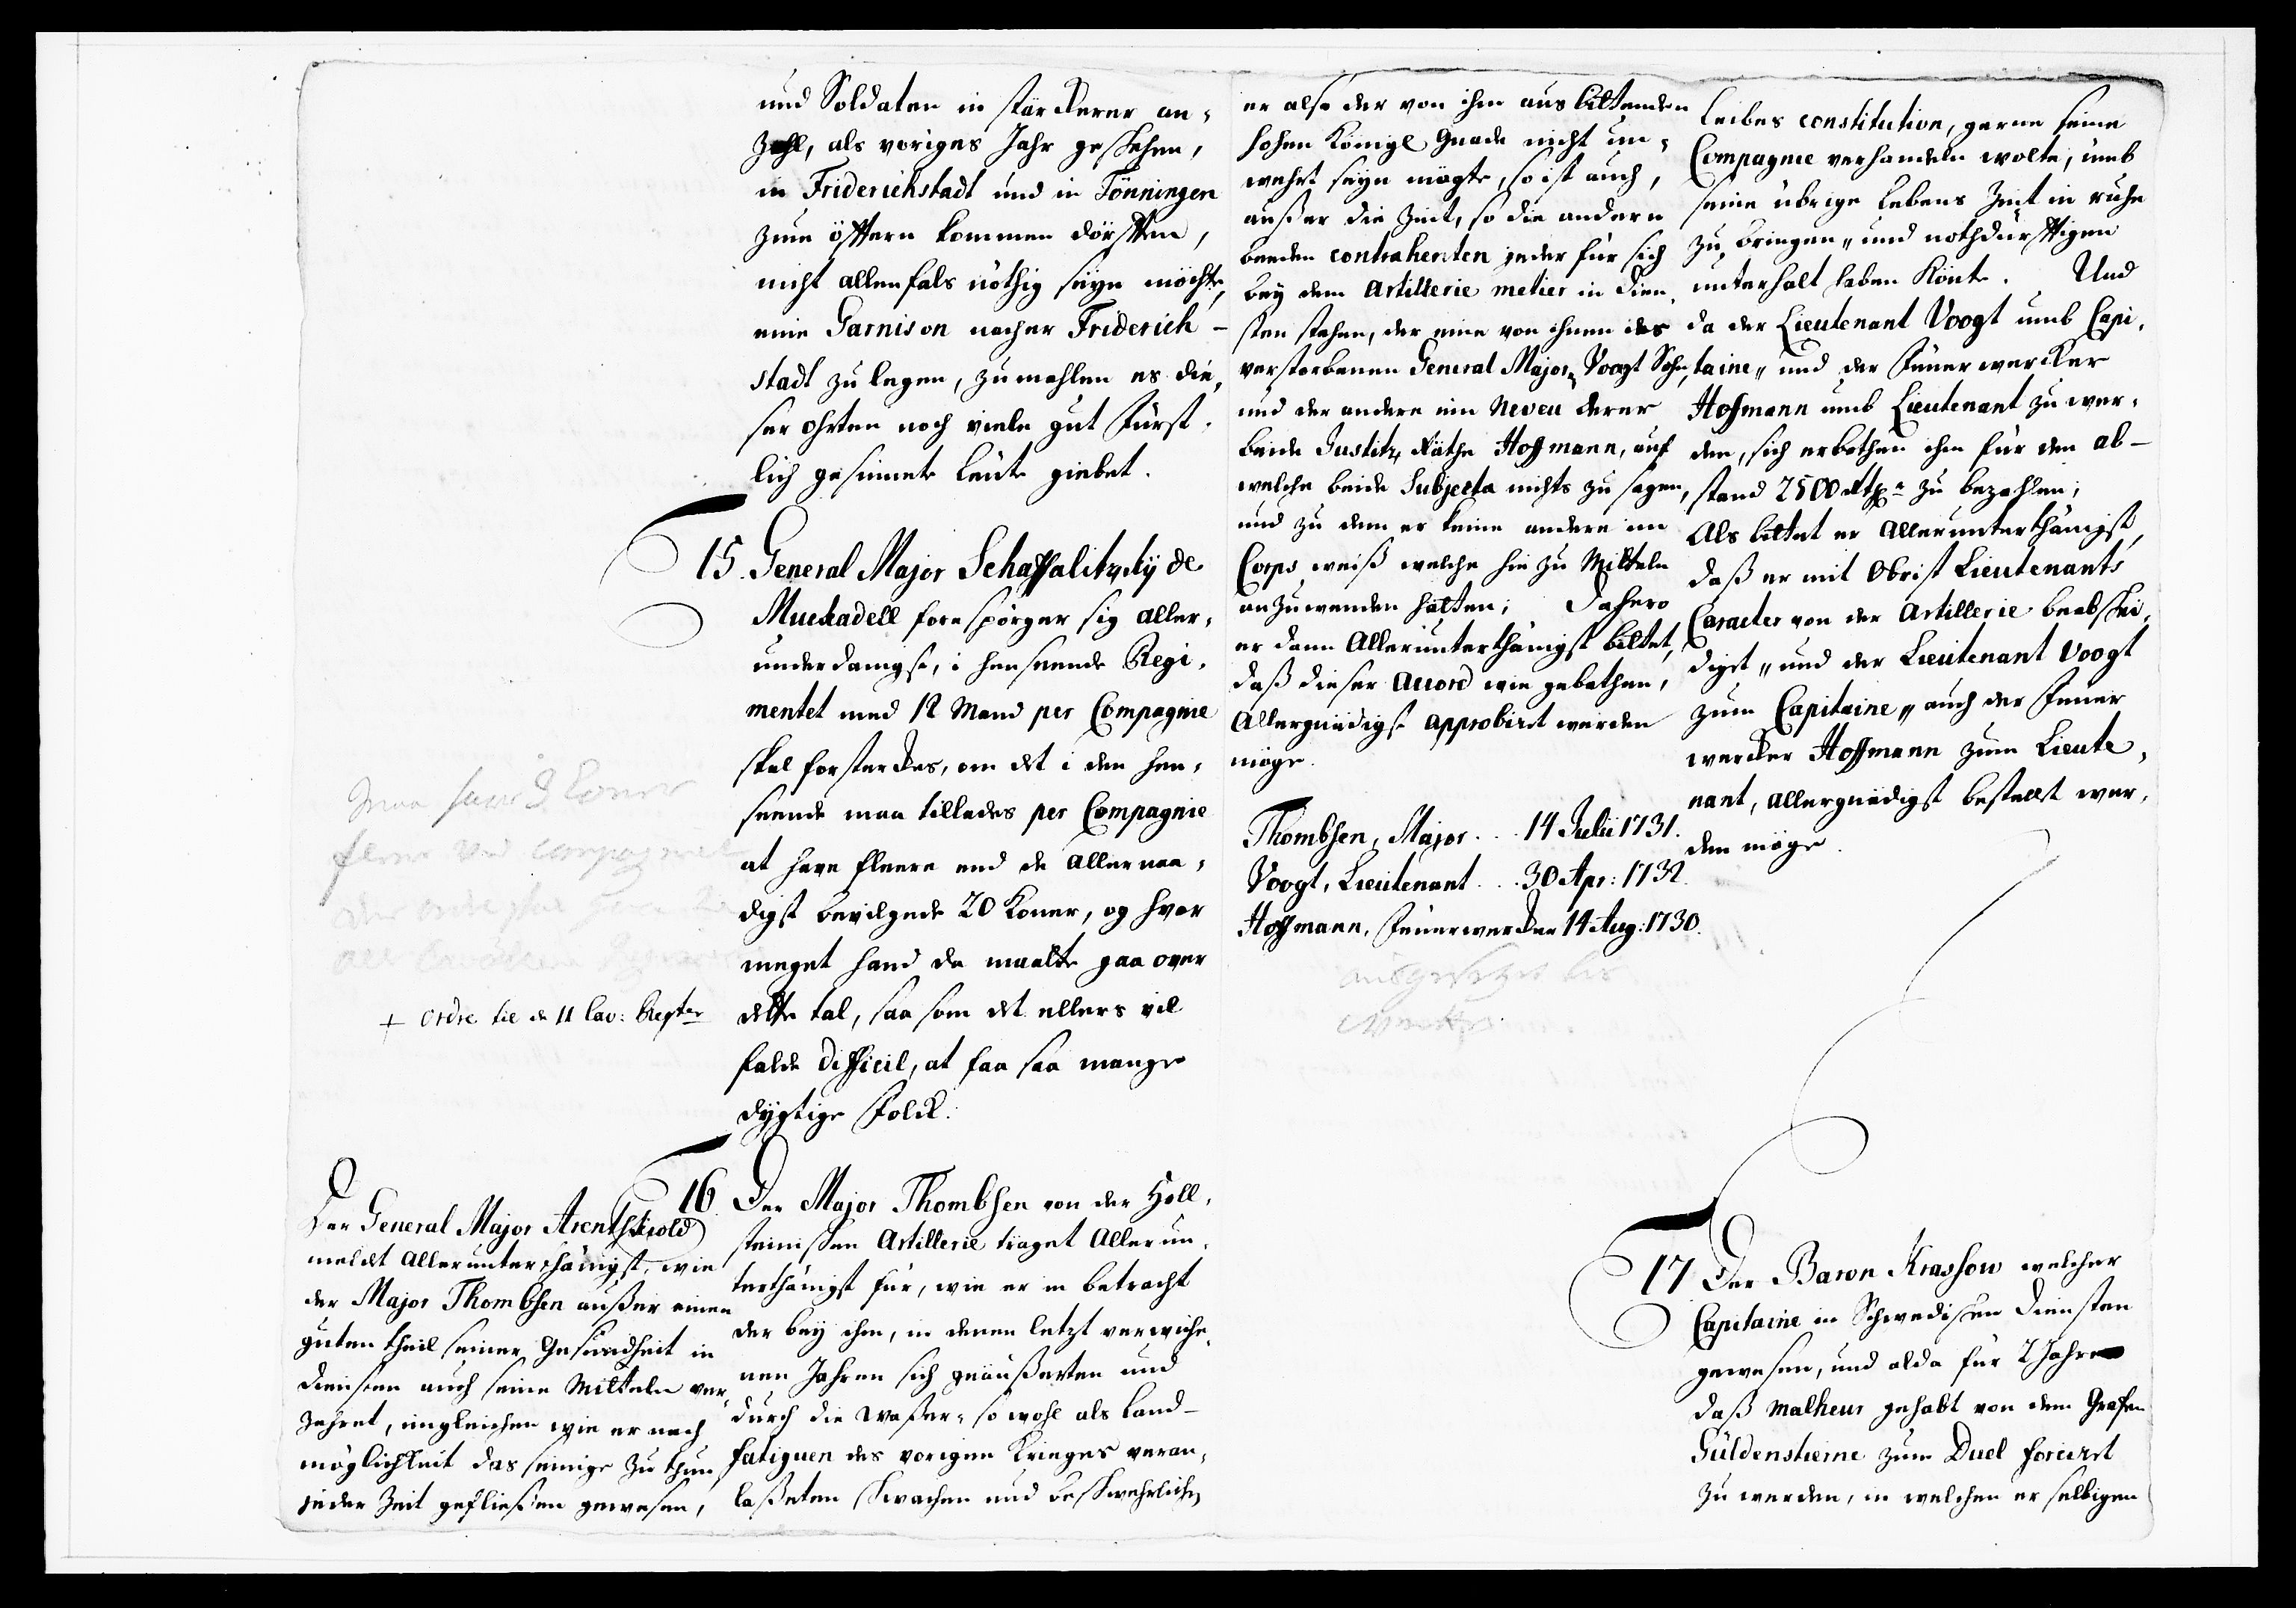 und Soldaten in stärckerer an-
zahl, als voriges Jahr geschehen,
in Friderichstadt und in Tönningen
zum öfftern kommen dörfften,
nicht allenfals nöthig seyn möchte,
eine Garnison nacher Friderich-
stadt zu legen, zumahlen es die-
ser ohrten noch viele gut Fürst-
lich gesinnete leute giebet.
15. General Major Schaffalitzky de
Muckadell forespörger sig aller-
underdanigst, i henseende Regi-
mentet med 12 Mand per Compagnie
skal forsterckes, om det i den hen-
seende maa tillades per Compagnie
at have fleere end de allernaa-
digst bevilgede 20 Koner, og hvor
meget hand da maatte gaa over
dette tal, saa som det ellers vil
falde difficil, at faa saa mange
dygtige Folck.
maa have Koner
fleere ved compagniet
+ Ordre til de 11 Cav: Regter
16.
Der General Major Arenthskiold
meldet allerunterthänigst, wie
der Major Thombsen außer einen
guten theil seiner Gesundheit in
diensten auch seine Mitteln ver-
zehret, imgleichen wie er nach
möglichkeit das seinige zu thun
jeder Zeit gefließen gewesen,
Der Major Thombsen von der Holl-
steinischen Artillerie träget allerun-
terthänigst für, wie er in betracht
der bey ihm, in denen letzt verwiche-
nen Jahren sich geäußerten und
durch die Waßer- so wohl als Land-
fatiguen des vorigen Krieges veran-
laßeten schwachen und beschwehrlichen
er also der von ihm aus bittenden
hohen Königl Gnade nicht un-
wehrt seyn mögte, so ist auch,
außer die Zeit, so die andern
beeden contrahenten jeder für sich
bey dem Artillerie metier in dien-
sten stehen, der eine von ihnen des
verstorbenen General Major Voogt Sohn,
und der andere ein Neveu derer
beide Justitz Räthe Hoffmann, auf
welche beide Subjecta nichts zu sagen,
und zu dem er keine andere im
Corps weiß welche hie zu Mitteln
anzuwenden hätten; Dahero
er dann Allerunterthänigst bittet,
daß dieser Accord wie gebethen,
Allergnädigst approbiret werden
möge.
Thombsen, Major . . . 14 Julii 1731.
Voogt, Lieutenant . . . 30 Apr: 1732.
Hoffmann, Feuerwercker 14 Aug: 1730.
ausgesetzet bis
leibes constitution, gerne seine
Compagnie verhandeln wolte, umb
seine übrige Lebens Zeit in ruhe
zu bringen, und nothdürfftigen
unterhalt haben könte. Und
da der Lieutenant Voogt umb Capi-
taine, und der Feuerwercker
Hoffmann umb Lieutenant zu wer-
den, sich erbothen ihm für den ab-
stand 2500 Rthr. zu bezahlen;
Als bittet er Allerunterthänigst,
daß er mit Obrist Lieutenants
Caracter von der Artillerie beabschei-
diget, und der Lieutenant Voogt
zum Capitaine, auch der Feuer
wercker Hoffmann zum Lieute-
nant, allergnädigst bestellt wer-
den möge.
17 Der Baron Krassow welcher
Capitaine in Schwedischen Diensten
gewesen, und alda für 2 Jahre
daß malheur gehabt von dem Grafen
Güldenstierne zum Duel forciret
zu werden, in welchen er selbigen